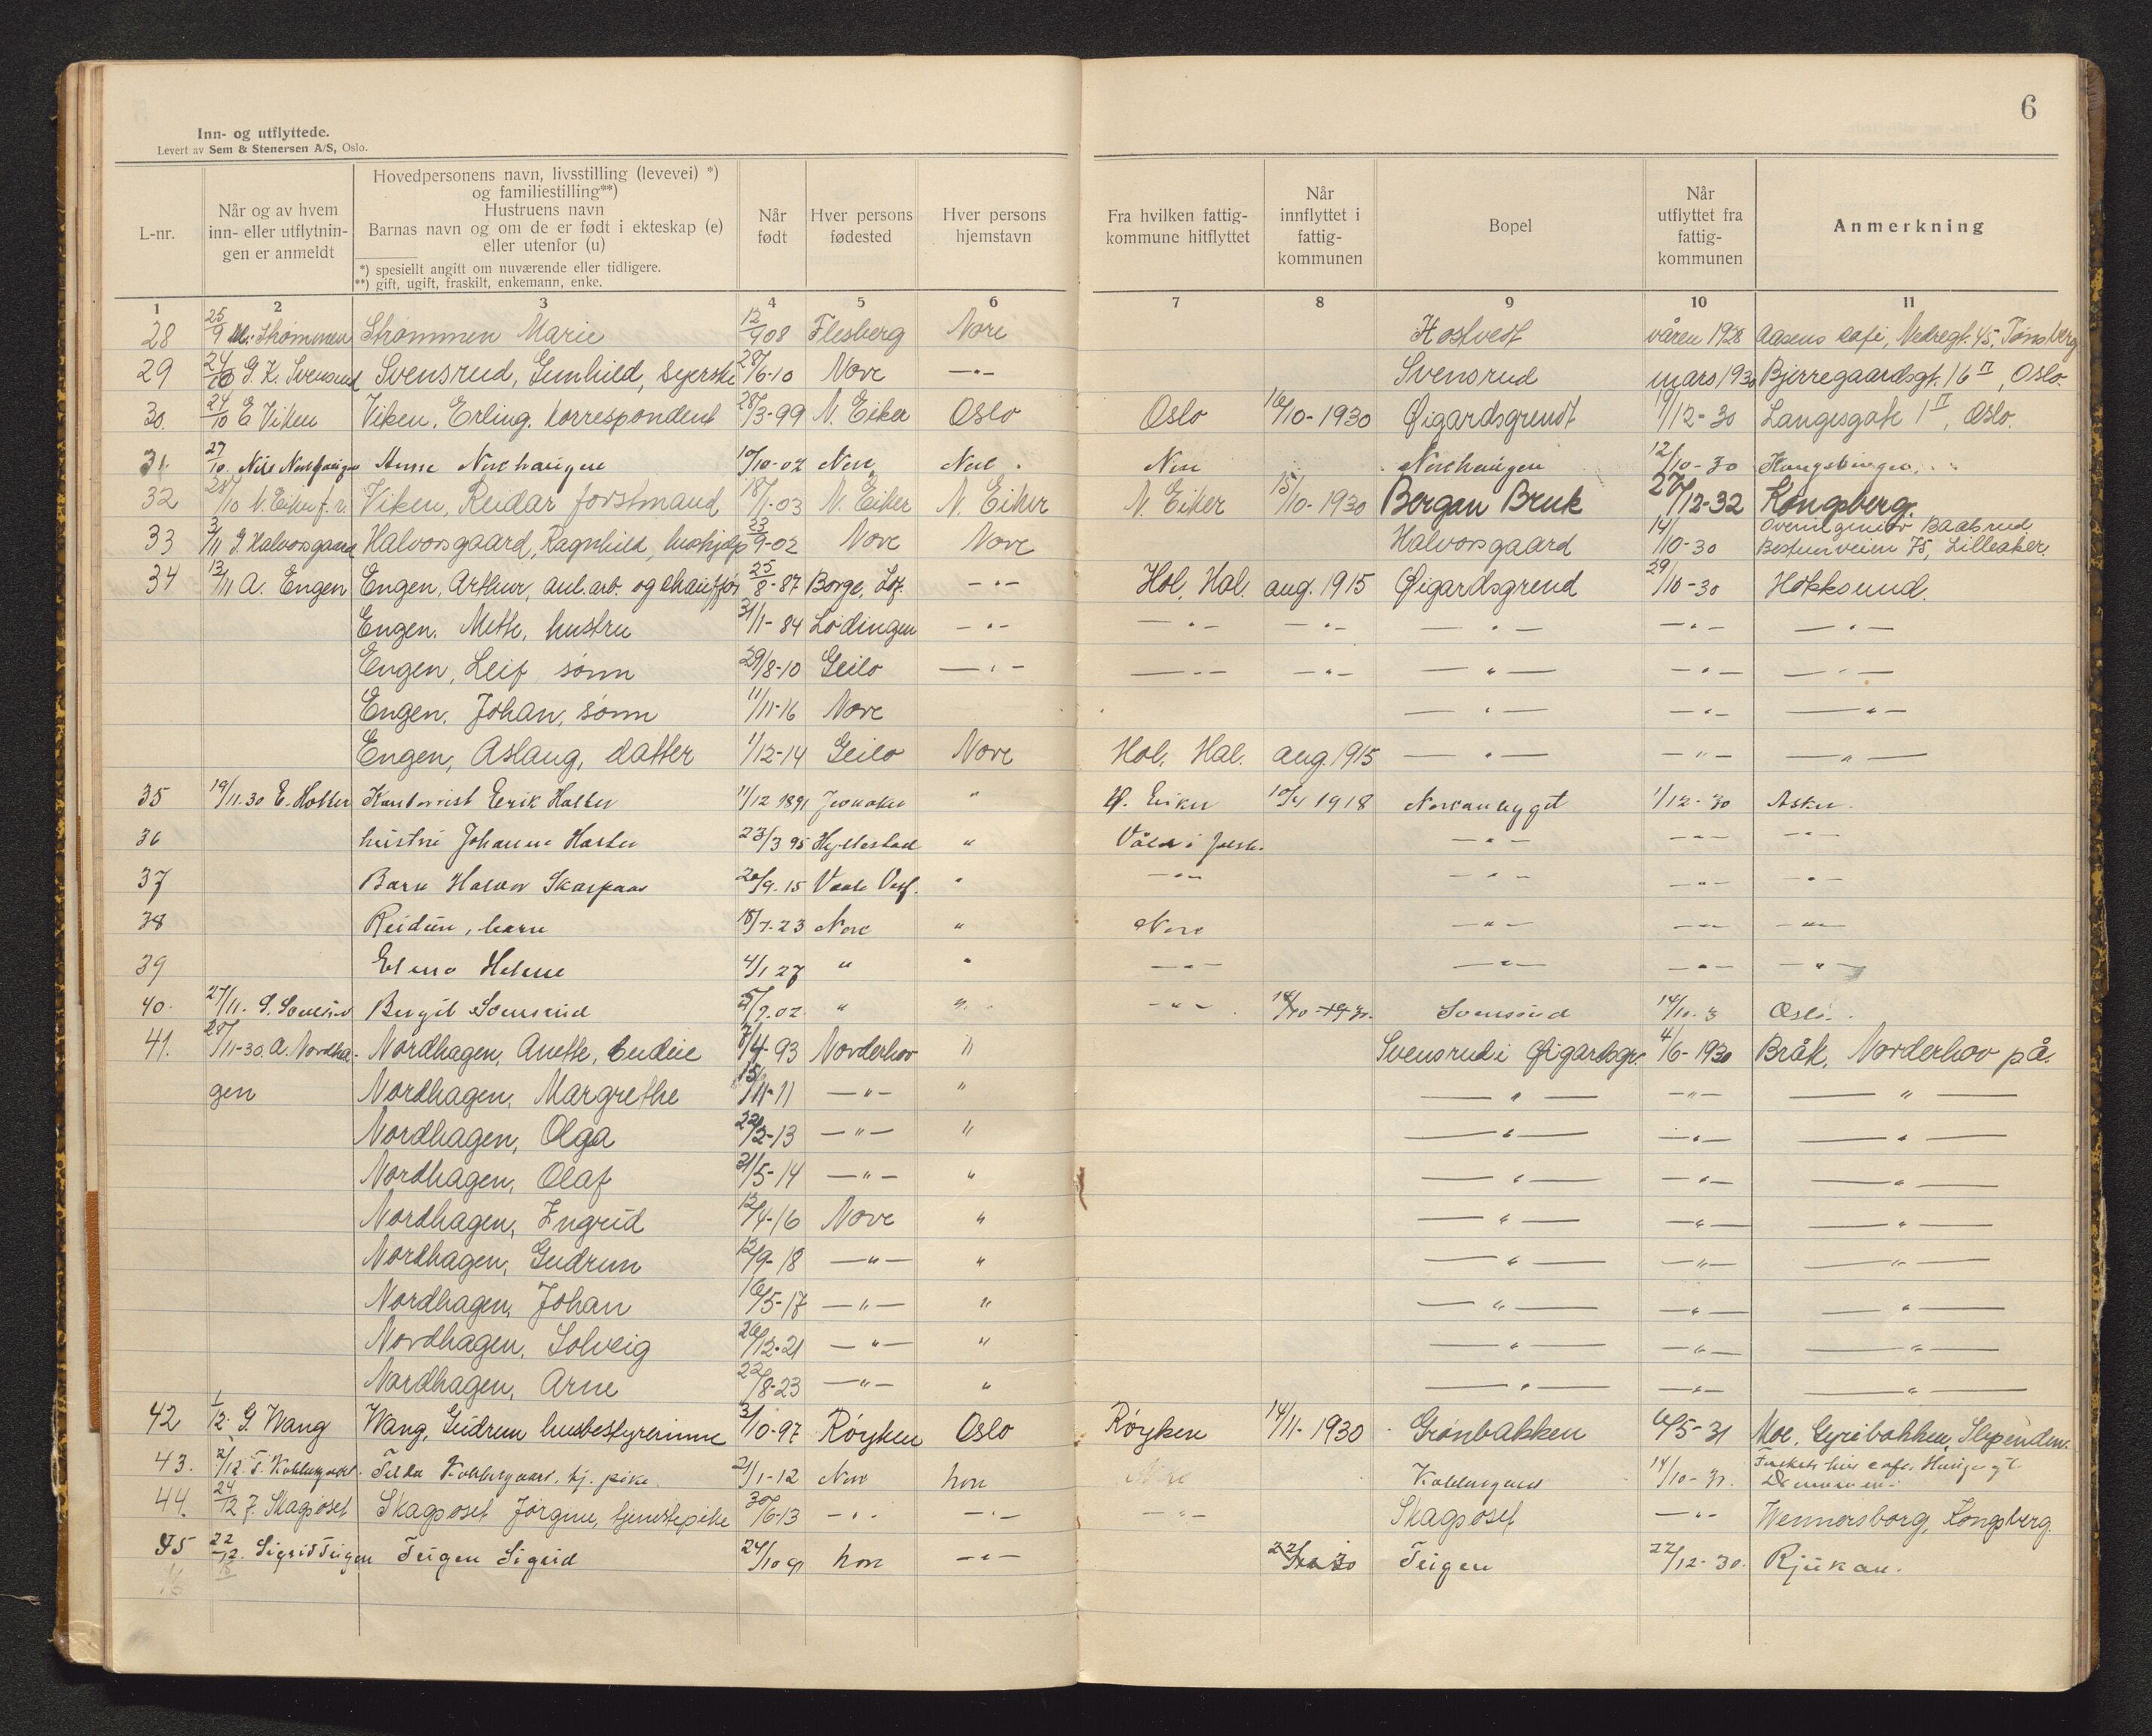 6
Inn- og utflyttede.
Levert av Sem & Stenersen A/S, Oslo.
L-nr.
Når og av hvem inn- eller utflytnin- gen er anmeldt
Hovedpersonens navn, livsstilling (levevei) *) og familiestilling**)
Hustruens navn
Barnas navn og om de er født i ekteskap (e) eller utenfor (u)
*) spesiellt angitt om nuværende eller tidligere.
**) gift, ugift, fraskilt, enkemann, enke.
Når født
Hver persons fødested
Hver persons hjemstavn
Fra hvilken fattig- kommune hitflyttet
Når innflyttet i fattig- kommunen
Bopel
Når utflyttet fra fattig- kommunen
Anmerkning
1 2 3 4 5 6 7 8 9 10 11
28 25/9 M. Strømmen Strømmen Marie 12/9 08 Flesberg Nore våren 1928 Aasens Café, Nedregt. 45, Tønsberg
29 24/10 G. K. Svensrud Svensrud, Gunhild, syerske 28/6-10 Nore —"— Svensrud mars 1930 Bjerregaardsgt. 16 II, Oslo.
30. 24/10 E Viken Viken, Erling. korrespondent 28/3-99 N. Eiker Oslo Oslo 16/10-1930 Øigardsgrendt 19/12-30 Langesgate 1 II, Oslo.
31. 27/10. Nils 10/10-02 Nore Nore Nore 12/10-30
32 28/10 N. Eiker f.v. Viken, Reidar forstmand 18/1-03 N. Eiker N. Eiker N. Eiker 15/10-1930 Bergan Bruk 27/12-32 Kongsberg.
33 3/11 G. Halvorsgaard Halvorsgaard, Ragnhild, hushjelp 23/9-02 Nore Nore Halvorsgaard 14/10-30 Overingeniør Baalsrud Bestumveien 75, Lilleaker.
34 13/11 A. Engen Engen, Arthur, anl.arb. og chauffør 25/8-87 Borge, Lof. —"— Hol, Hal. aug. 1915 Øigardsgrend 29/10-30 Hokksund.
Engen, Mette, hustru 31/1-84 Lødingen —"— —"— —"— —"— —"— —"—
Engen, Leif sønn 29/8-10 Geilo —"— —"— —"— —"— —"— —"—
Engen, Johan, sønn 11/11-16 Nore —"— —"— —"—
Engen, Aslaug, datter 1/12-14 Geilo Nore Hol, Hal. aug. 1915 —"— —"— —"—
35 19/11.30 E. Holter Kontorist Eerik Holter 11/12 1891 Jevnaker " Ø. Eiker 10/4 1918 1/12-30 Asker.
36 hustru Johanne Holter 23/3 95 Hyllestad " —"— —"— —"—
37 Barn Halvor Skarpaas 20/9.15 " —"— —"— —"— —"—
38 Reidun, barn 18/7.23 Nore " Nore —"— —"— —"—
39 Helene 4/1 27 " " —"— —"— —"— —"—
40. 27/11. Birgit Svensrud 5/7.02 " " —"— Svensrud 14/10.3 Oslo.
41. 28/11-30. A. Nordha- Nordhagen, Anette, budeie 7/4-93 Norderhov " Svensrud i Øigardsgr. 4/6-1930 Bråk, Norderhov på.
gen Nordhagen, Margrethe 15/11-11 —"— " —"— —"— —"—
Nordhagen, Olga 22/2-13 —"— " —"— —"— —"—
Nordhagen, Olaf 31/5-14 —"— " —"— —"— —"—
Nordhagen, Ingrid 12/4-16 Nore " —"— —"— —"—
Nordhagen, Gudrun 12/9-18 —"— " —"— —"— —"—
Nordhagen, Johan 16/5-17 —"— " —"— —"— —"—
Nordhagen, Solveig 26/12-21 —"— " —"— —"— —"—
Nordhagen, Arne 22/8-23 —"— " —"— —"— —"—
42 1/12. G. Wang Wang, Gudrun husbestyrerinne 3/10-97 Røyken Oslo Røyken 14/11-1930 Grønbakken 6/5-31 Moe, Gyribakken, Slependen.
43. 2/12. T. 21/1-12 Nore Nore Nore 14/10-30.
44. 24/12 J. Skagsoset Skagsoset Jørgine, tjenestepike 30/6-13 —"— —"— —"— Skagsoset —"— Wennersborg, Kongsberg.
45 22/12. Sigrid Teigen Teigen Sigrid 24/10 91 Nore —"— Teigen 22/12-30. Rjukan.